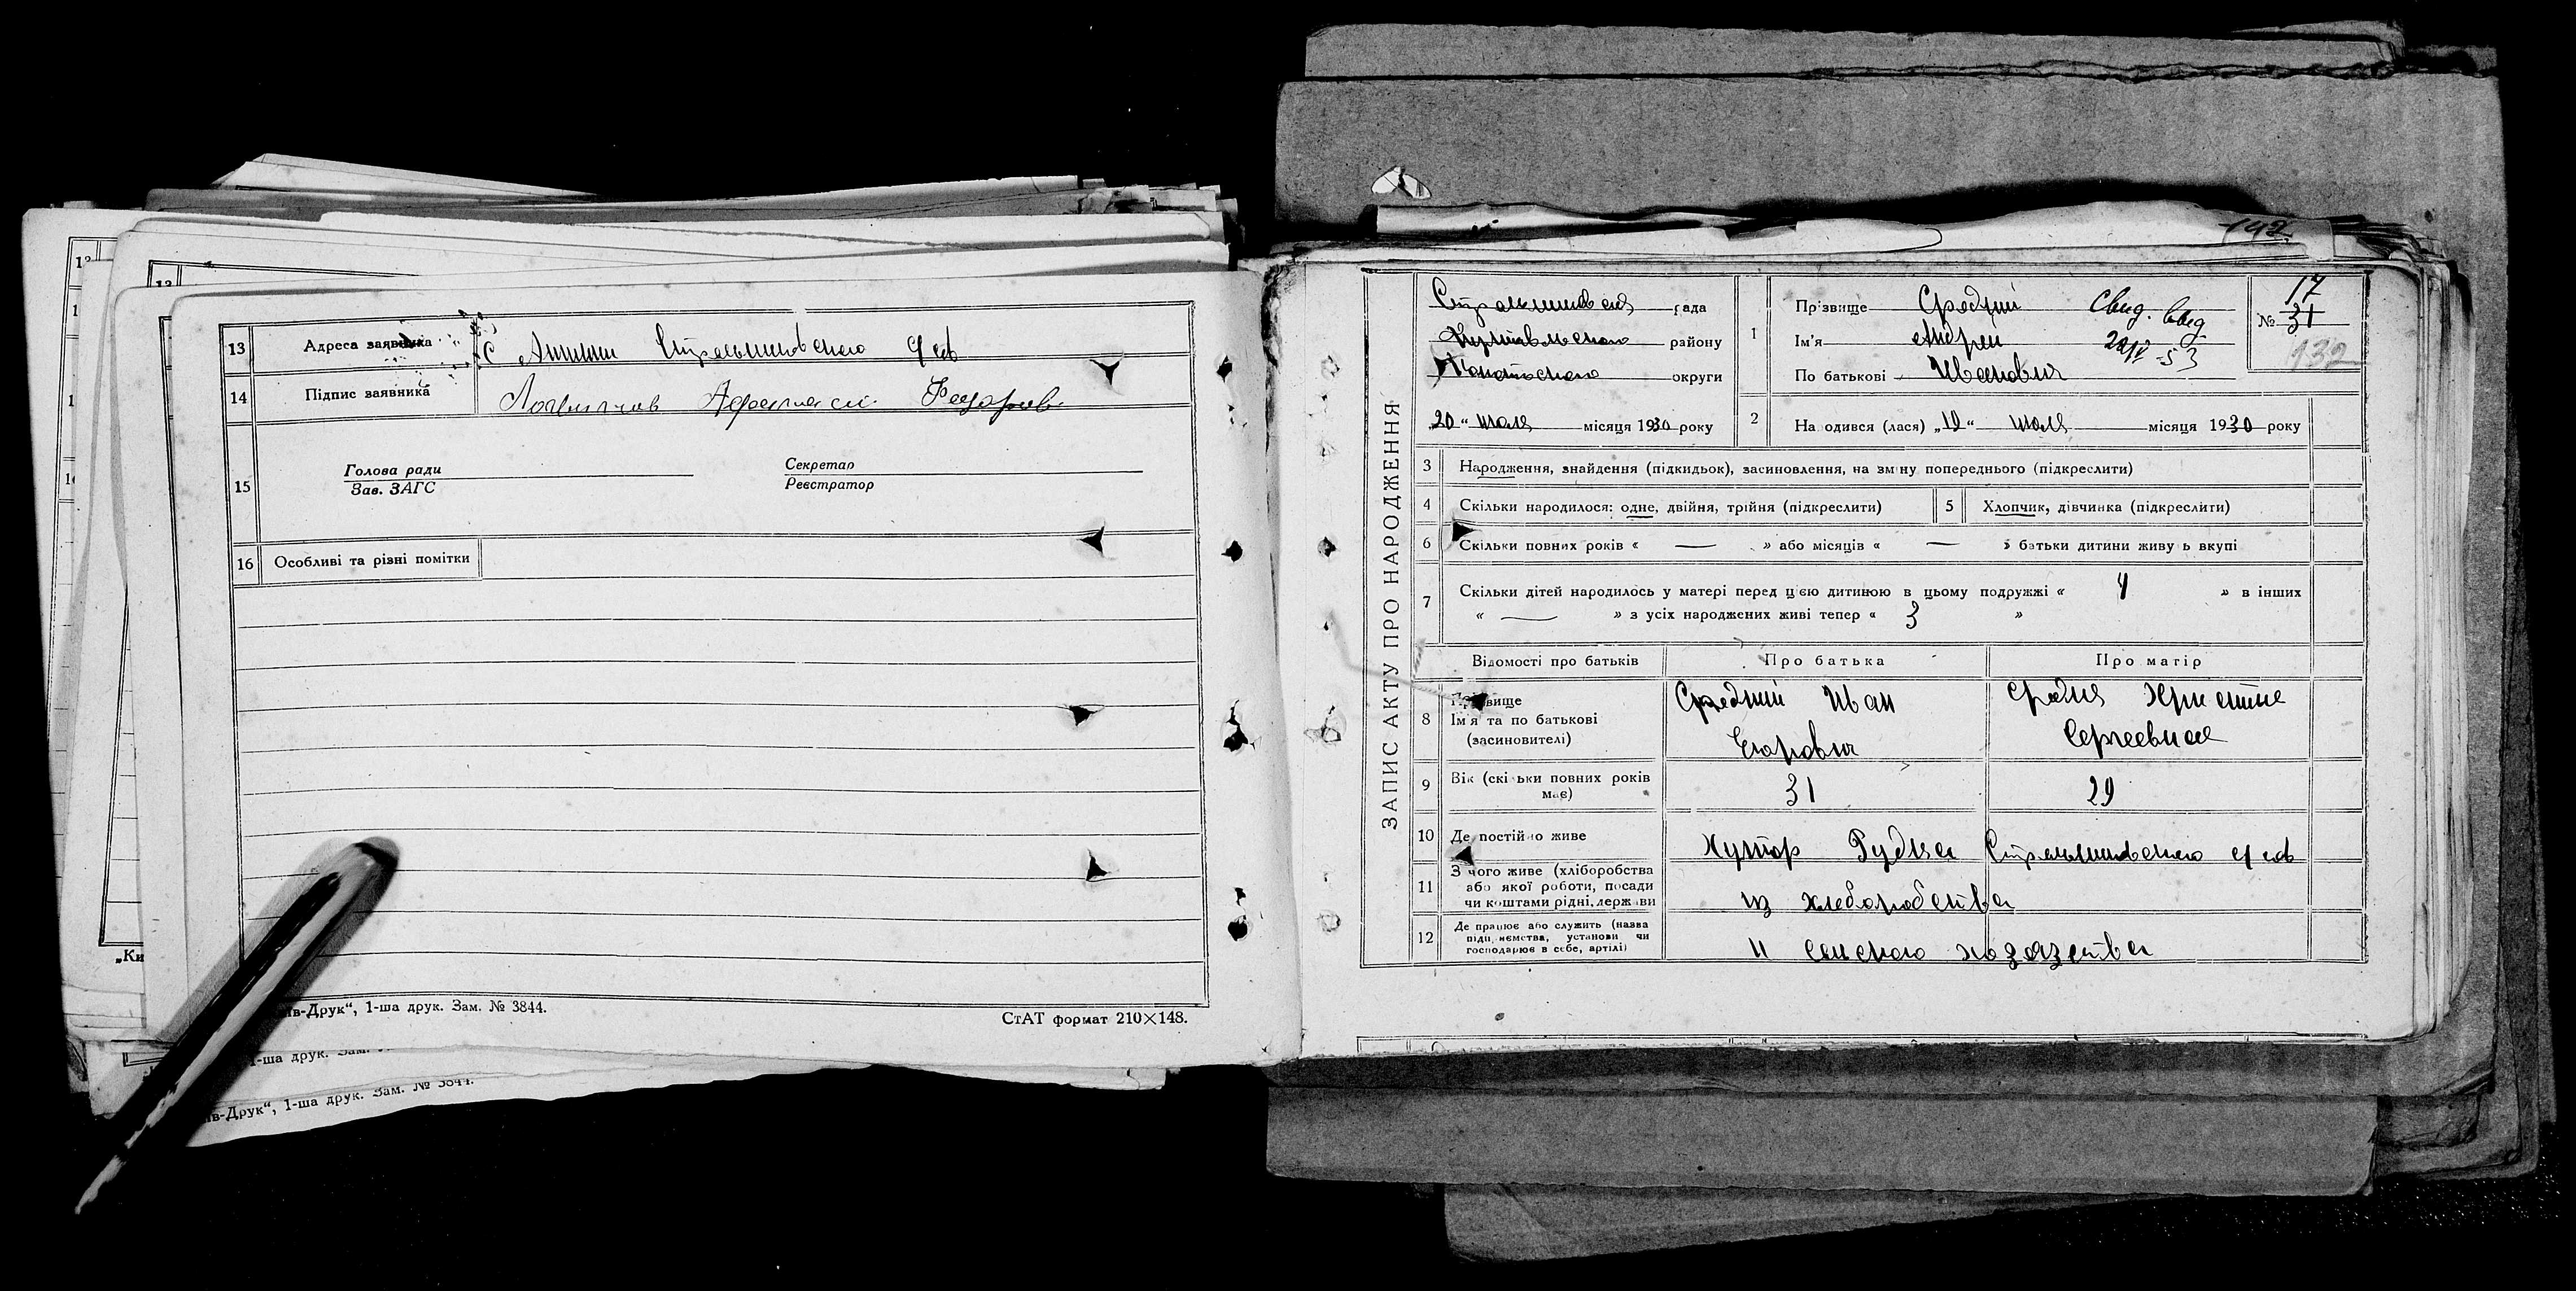 13 Адреса заявника с
14 Підпис заявника Афанаси Федоров
15 Голова ради Секретар
Зав. ЗАГС Реєстратор
16 Особливі та різні помітки
ів-Друк“, 1-ша друк. Зам. № 3844.
СтАТ формат 210×148.
1-ша друк. Зам.
ів-Друк“, 1-ша друк. Зам. № 3844.
„Ки
142
ЗАПИС АКТУ ПРО НАРОДЖЕННЯ
рада
району
округи
„20“ июля місяця 1930 року
1 Прізвище Средний
Ім'я Андрей
По батькові Иванович
Свид. выд
22/V-53
№ 17
31
132
2 Народився (лася) „19“ июля місяця 1930 року
3 Народження, знайдення (підкидьок), засиновлення, на зміну попереднього (підкреслити)
4 Скільки народилося: одне, двійня, трійня (підкреслити) 5 Хлопчик, дівчинка (підкреслити)
6 Скільки повних років « — » або місяців « — » батьки дитини живуть вкупі
7 Скільки дітей народилось у матері перед цією дитиною в цьому подружжі « 4 » в інших
« — » з усіх народжених живі тепер « 3 »
Відомості про батьків Про батька Про матір
8 Прізвище Средний Иван Средня Христине
Ім'я та по батькові
(засиновителі) Егорович Сергеевна
9 Вік (скільки повних років
має) 31 29
10 Де постійно живе Хутор Рудня
11 З чого живе (хліборобства
або якої роботи, посади
чи коштами рідні, держави из хлеборобства
12 Де працює або служить (назва
підприємства, установи чи
господарює в себе, артілі) и сельского хозяэства